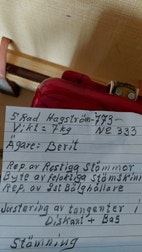 5 Rad Hagström-
Vikt = 7kg Nº 333
Ägare: Berit
Rep. av Rostiga Stämmor
Byte av felaktiga Stämskinn
Rep. av 2st Bälghållare
Justering av tangenter i
Diskant + Bas
Stämning